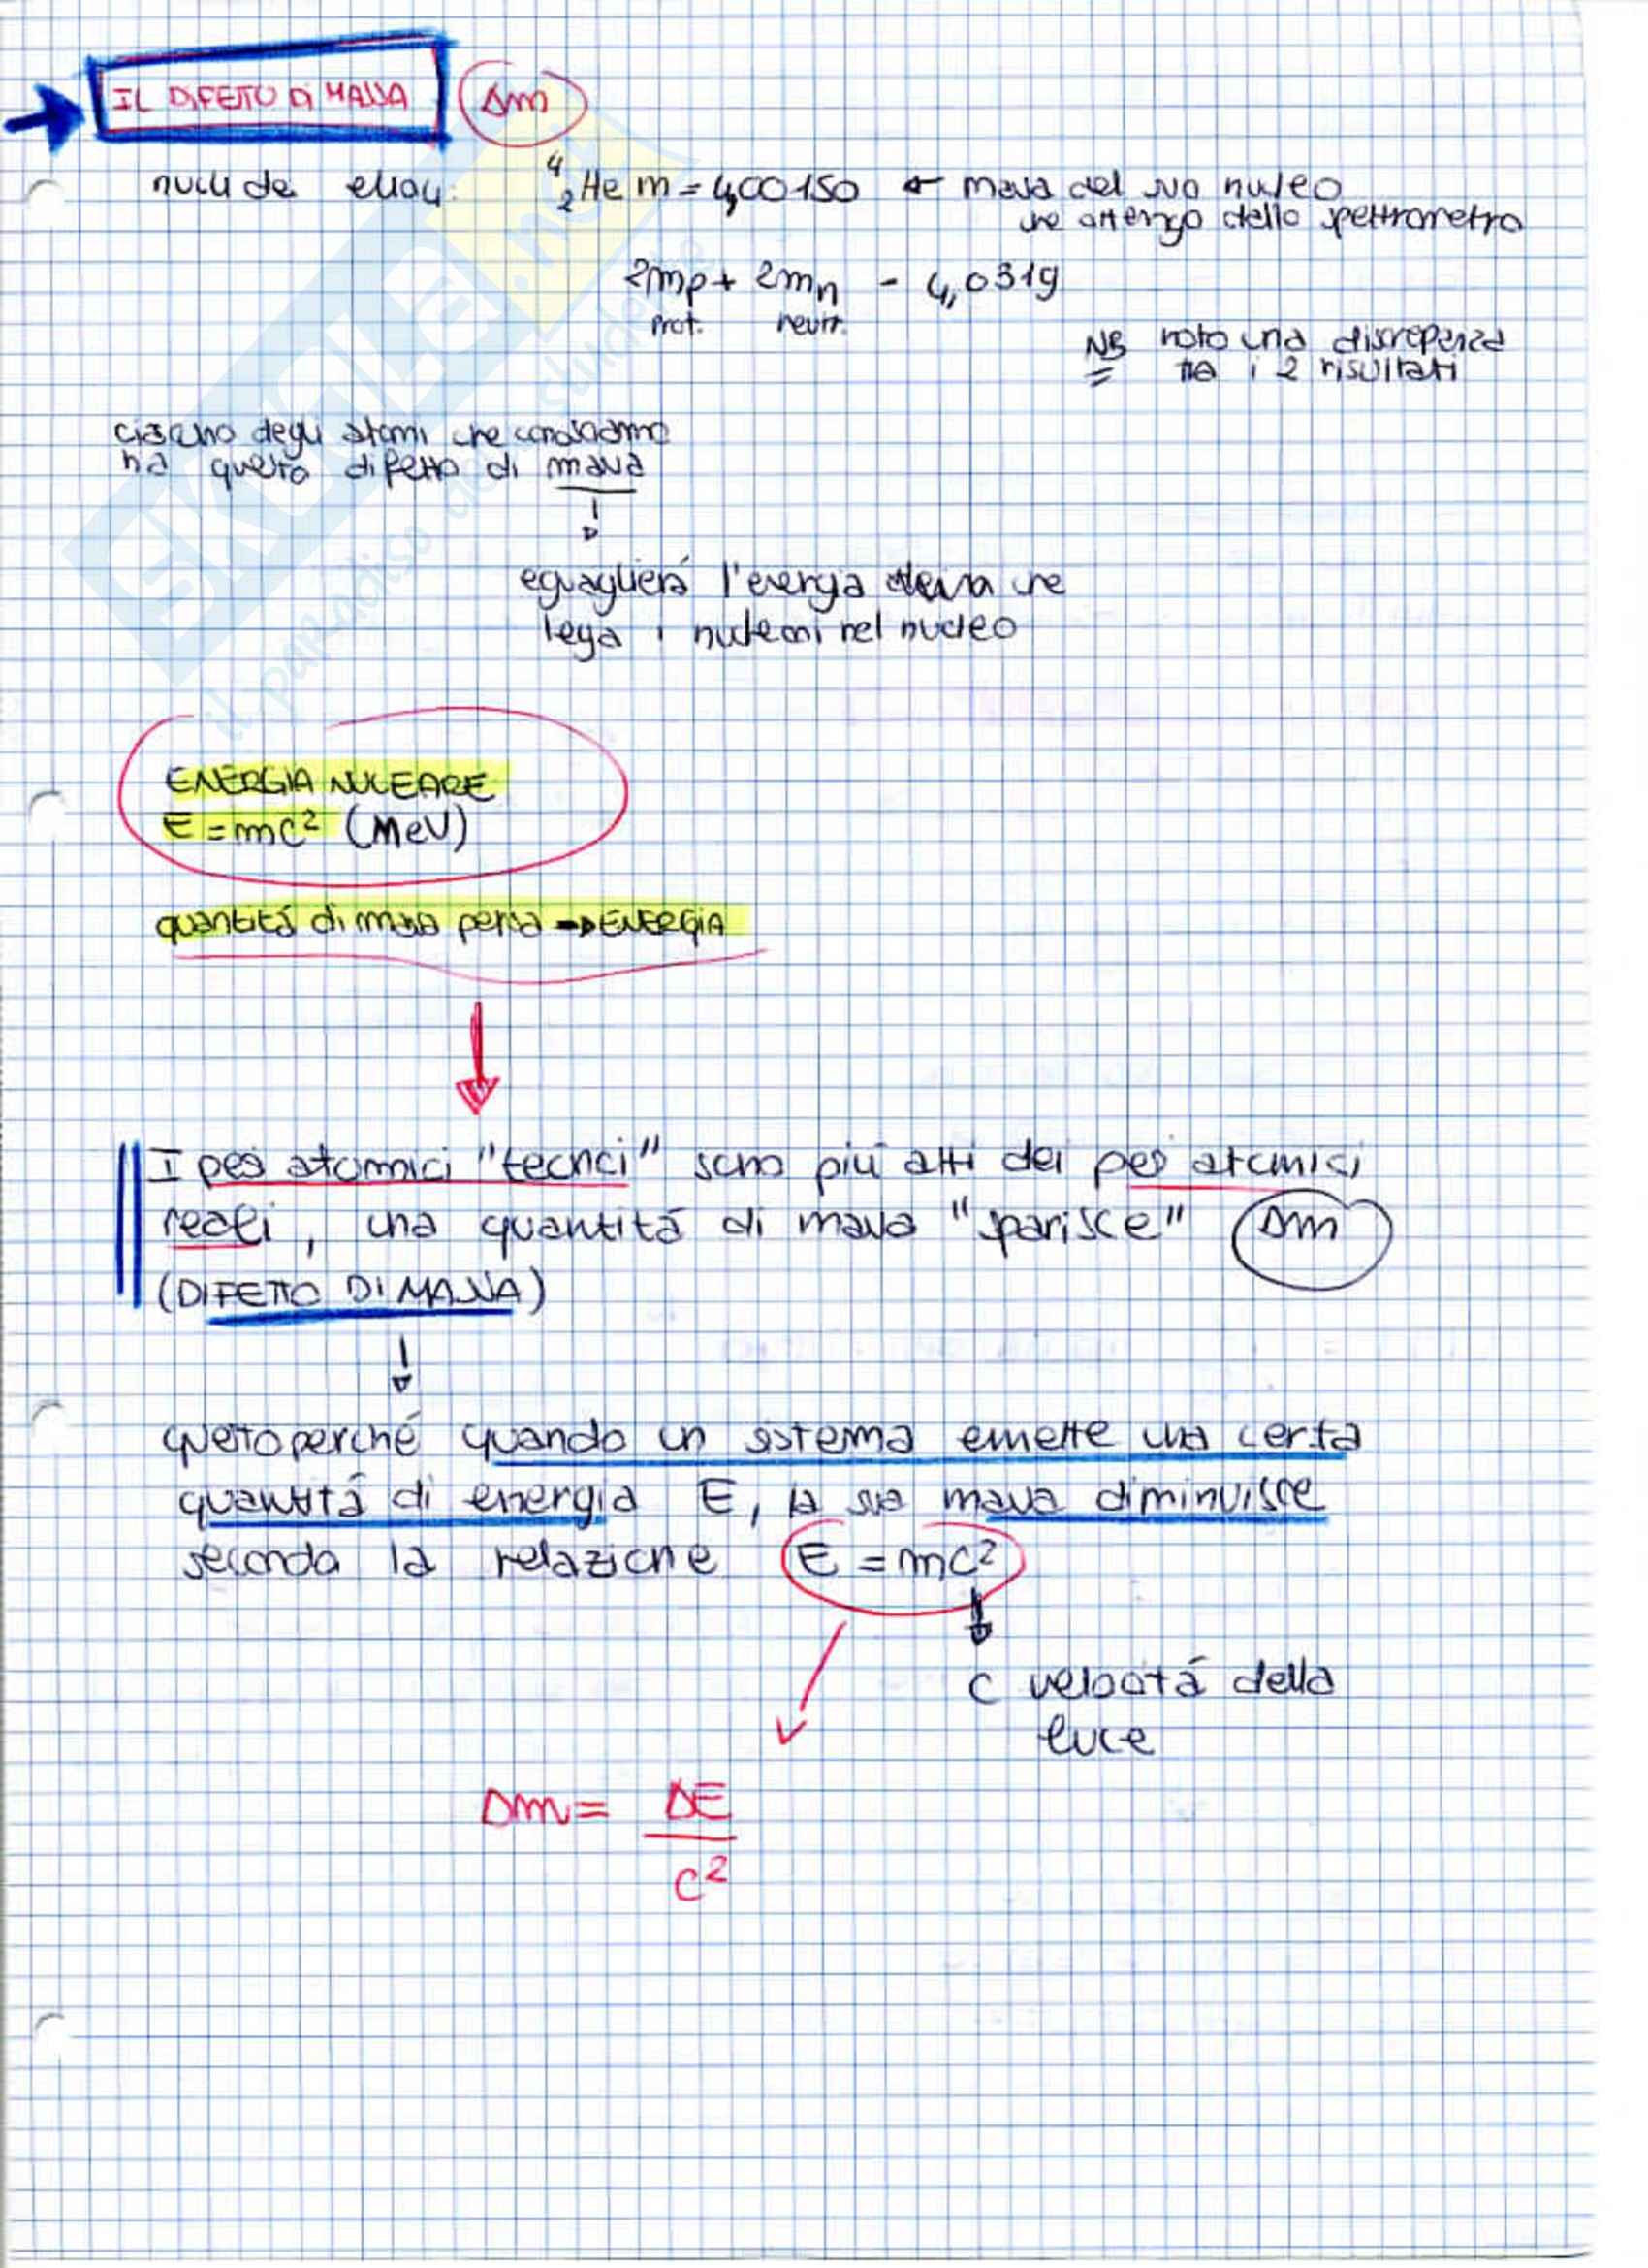 IL DIFETTO DI MASSA Δm
nuclide elio4: ⁴₂He m = 4,00150 ← massa del suo nucleo
che ottengo dallo spettrometro
2mp + 2mn - 4,0319
prot. neutr.
NB noto una discrepanza
tra i 2 risultati
ciascuno degli atomi che conosciamo
ha questo difetto di massa
↓
eguaglierá l'energia che
lega i nucleoni nel nucleo
ENERGIA NUCLEARE
E = mc² (MeV)
quantitá di massa persa → ENERGIA
I pesi atomici "tecnici" sono piú alti dei pesi atomici
reali, una quantitá di massa "sparisce" Δm
(DIFETTO DI MASSA)
↓
questo perché quando un sistema emette una certa
quantitá di energia E, la sua massa diminuisce
seconda la relazione E = mc²
c velocitá della
luce
Δm = ΔE
c²
SKUOLA.net
il paradiso dello studente